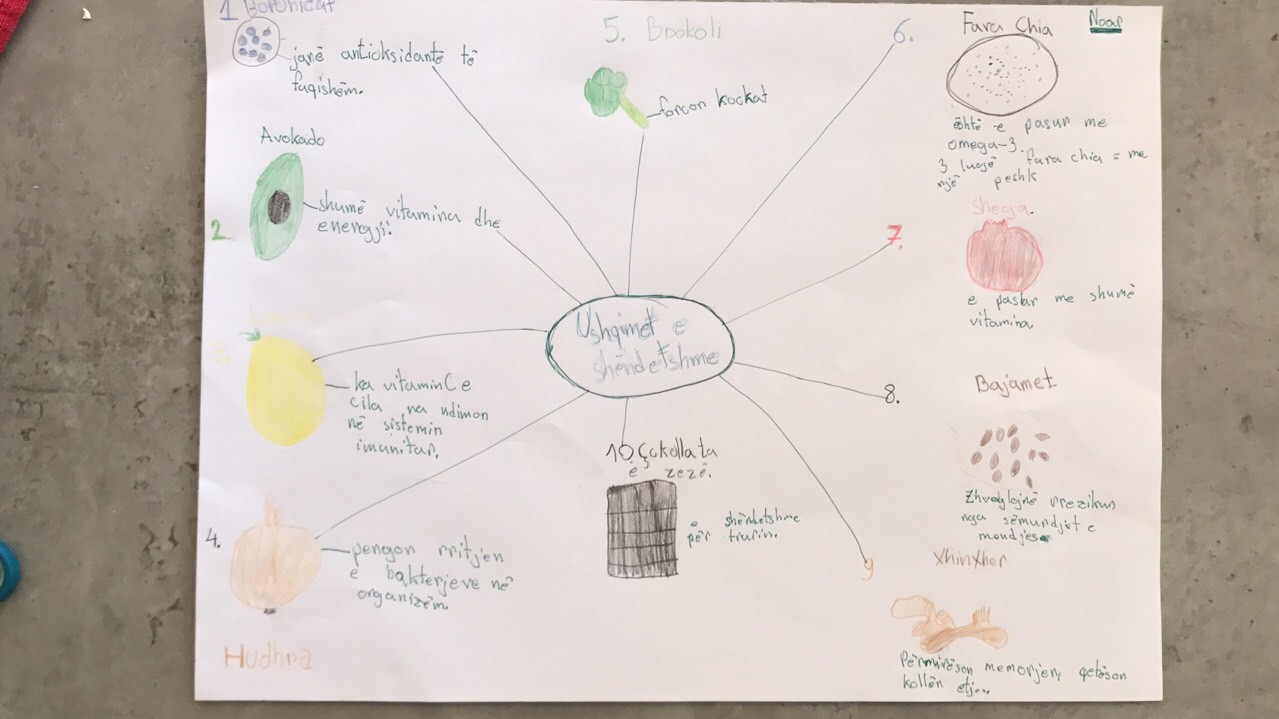 1 Boronicat
janë antioksidantë të
fuqishëm.
Avokado
2.
shumë vitamina dhe
energji!
3.
ka vitamin C e
cila na ndimon
në sistemin
imunitar,
4.
pengon rritjen
e bakterjeve në
organizëm.
Hudhra
5. Brokoli
forcon kockat
Ushqimet e
shëndetshme
10 Çokollata
e zezë.
e shëndetshme
për trurin.
6.
Fara Chia
Noar
është e pasur me
omega-3.
3 lugë fara chia = me
një peshk
7.
Shega.
e pasur me shumë
vitamina.
8.
Bajamet
rrezikun
nga sëmundjet e
9
Xhinxher
Përmirëson memorjen, qetëson
kollën etj...